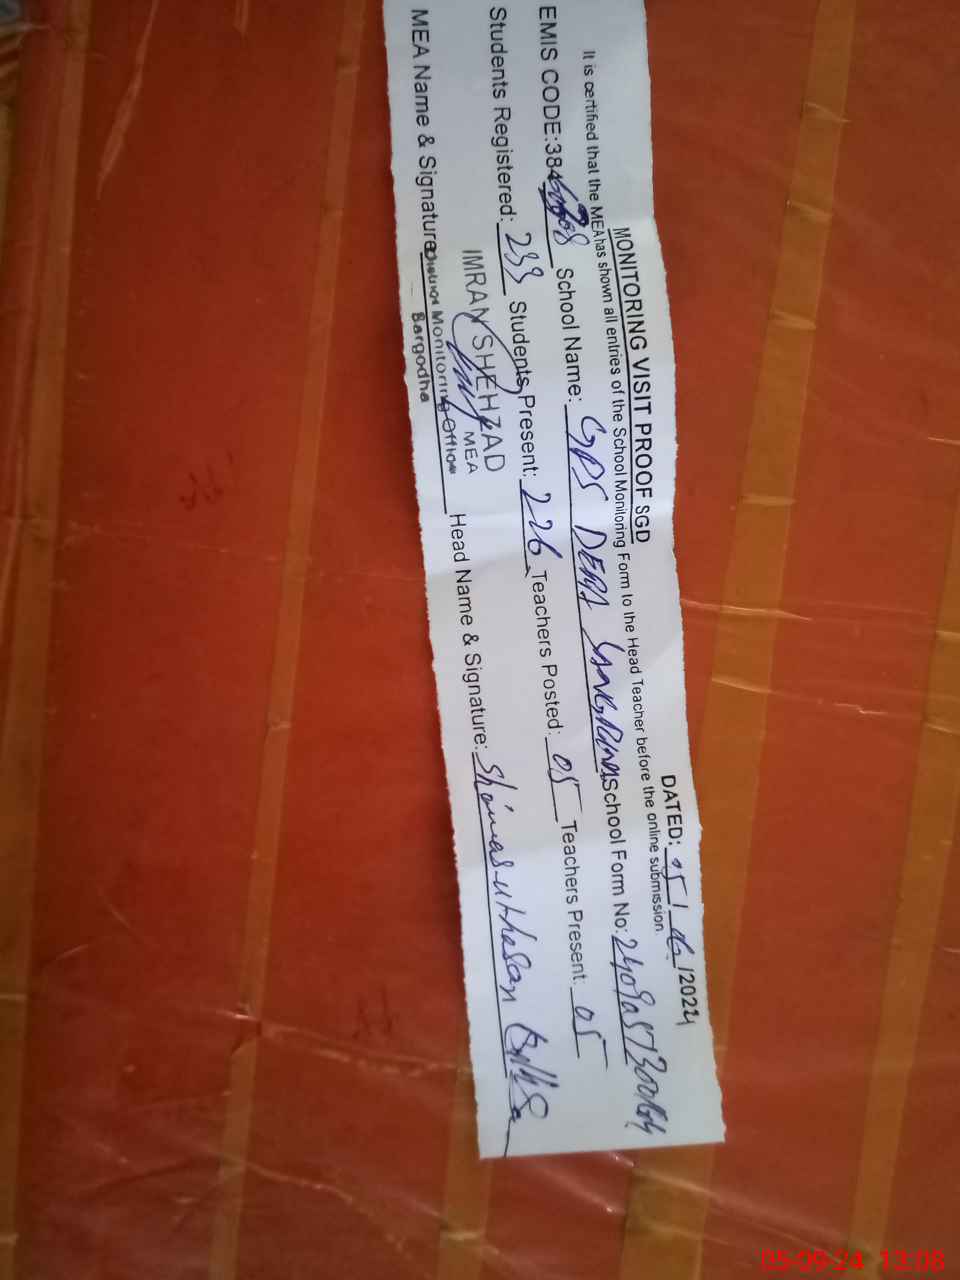 MONITORING VISIT PROOF SGD
DATED: 05/ /2024
It is certified that the MEA has shown all entries of the School Monitoring Form to the Head Teacher before the online submission
EMIS CODE:384 School Name: GPS DERA School Form No:
Students Registered: 233 Students Present: 226 Teachers Posted: 05 Teachers Present: 05
IMRAN SHEHZAD
MEA
MEA Name & Signature District Monitoring Office Head Name & Signature:
Sargodha
05-09-24 13:08